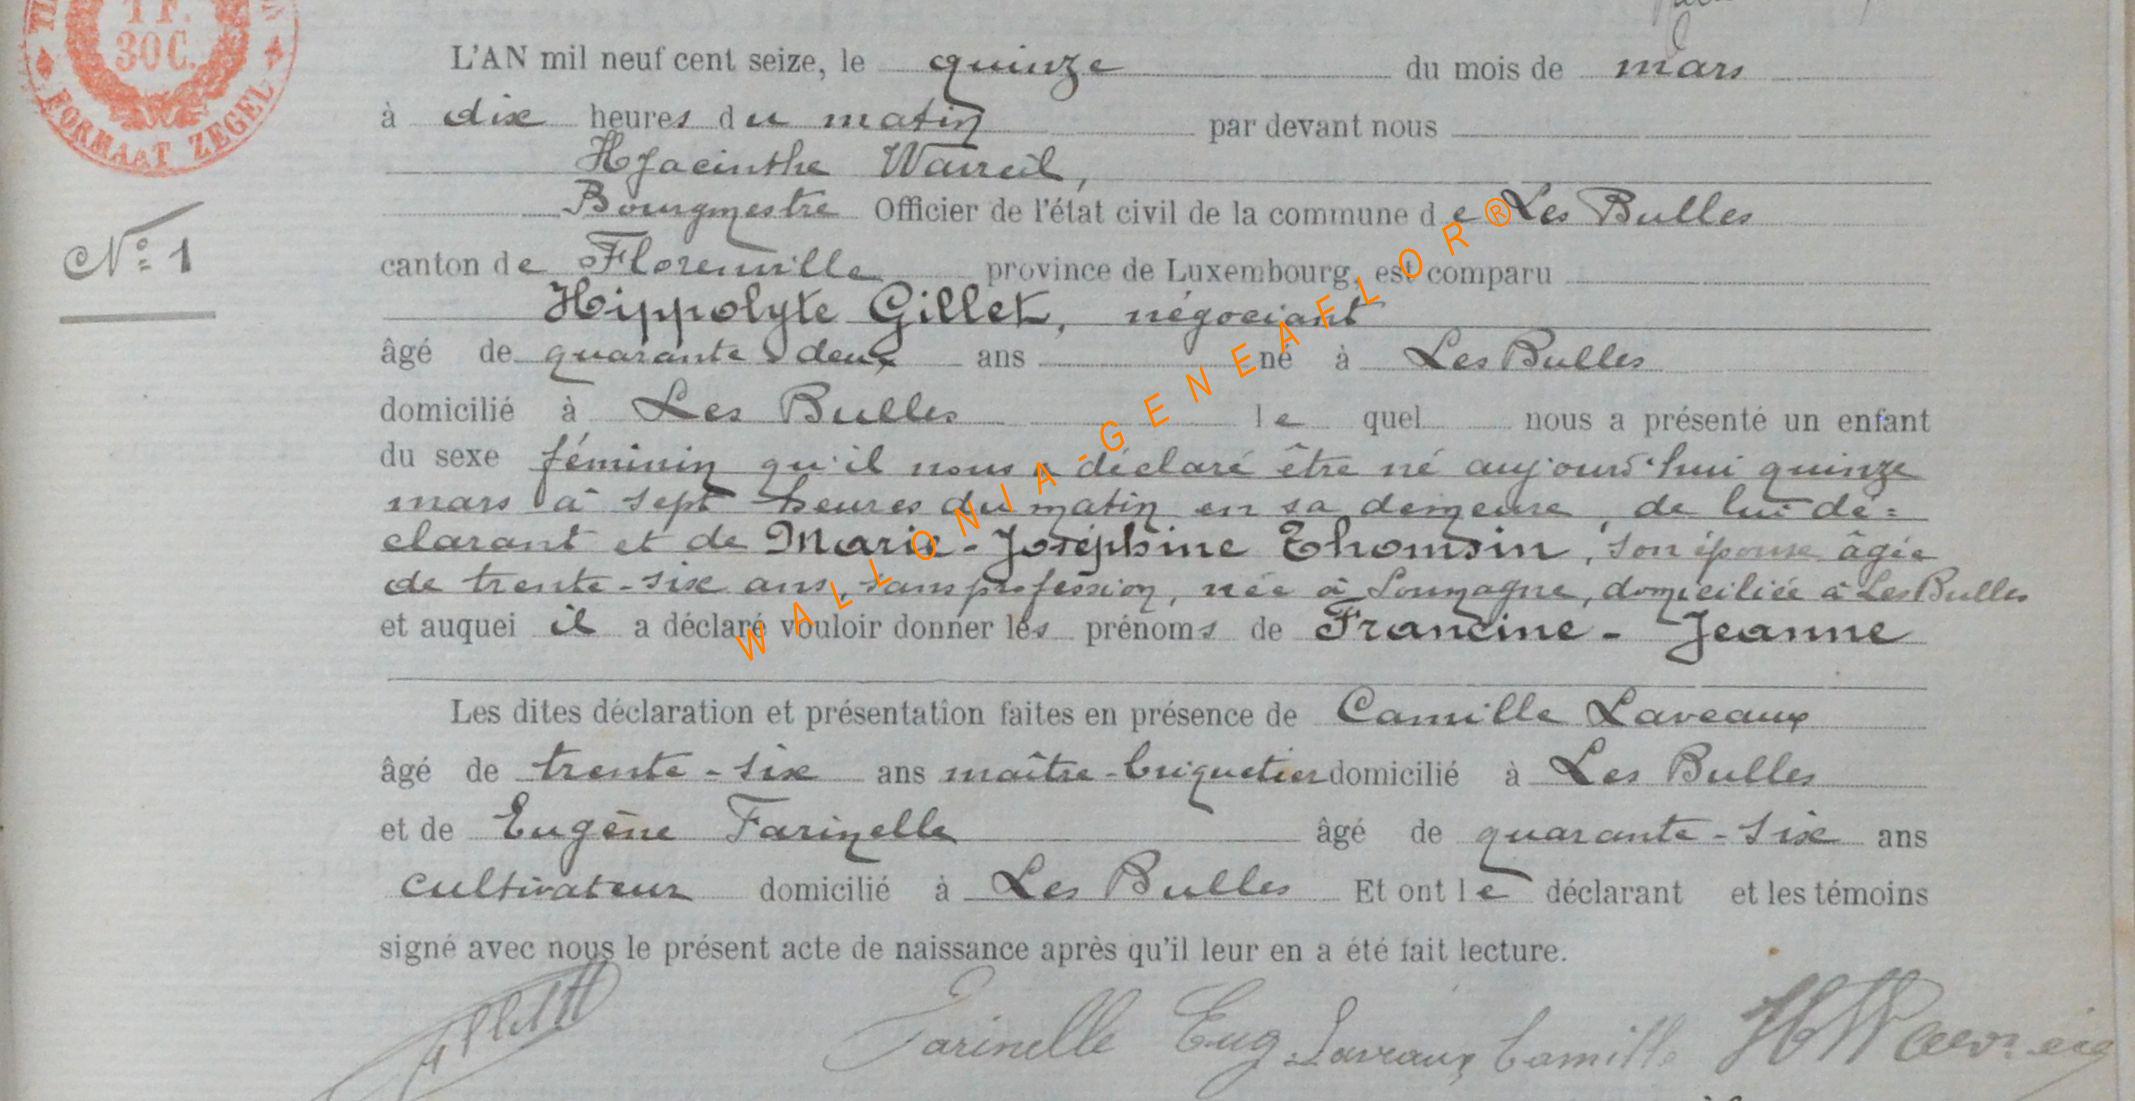 1 F.
30 C.
FORMAAT ZEGEL
L'AN mil neuf cent seize, le quinze du mois de mars
à dix heures du matin par devant nous
Hyacinthe Wavreil,
Bourgmestre Officier de l'état civil de la commune de Les Bulles
N° 1
canton de Florenville province de Luxembourg, est comparu
Hippolyte Gillet, négociant
âgé de quarante deux ans né à Les Bulles
domicilié à Les Bulles le quel nous a présenté un enfant
du sexe féminin qu'il nous a déclaré être né aujourd'hui quinze
mars à sept heures du matin en sa demeure, de lui dé=
clarant et de Marie-Joséphine Thomsin, son épouse âgée
de trente-six ans, sans profession, née à Soumagne, domiciliée à Les Bulles
et auquel il a déclaré vouloir donner les prénoms de Francine-Jeanne
Les dites déclaration et présentation faites en présence de Camille Laveaux
âgé de trente-six ans maître-briquetier domicilié à Les Bulles
et de Eugène Farinelle âgé de quarante-six ans
cultivateur domicilié à Les Bulles Et ont le déclarant et les témoins
signé avec nous le présent acte de naissance après qu'il leur en a été fait lecture.
Farinelle Eug Laveaux Camille
WALLONIA-GENEAFLOR®